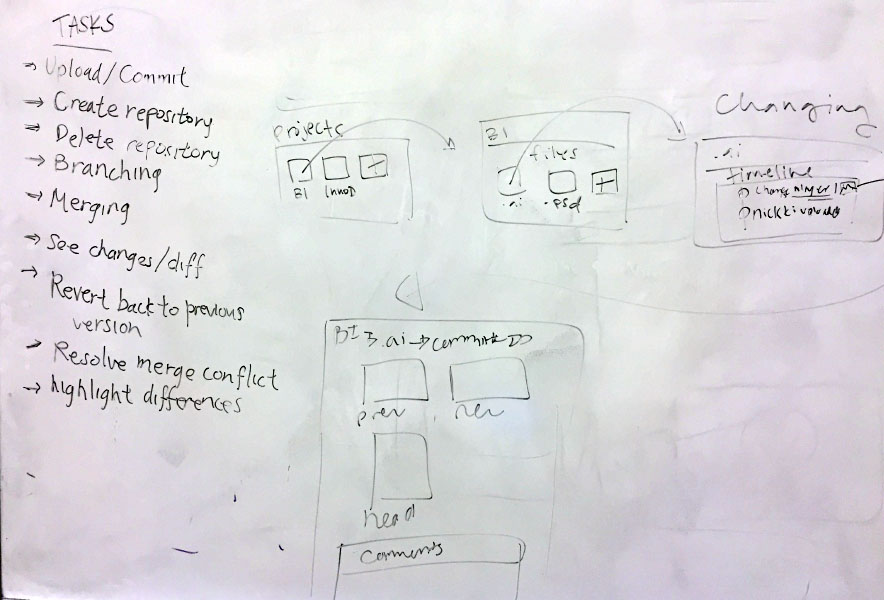 TASKS
→ Upload/Commit
→ Create repository
→ Delete repository
→ Branching
→ Merging
→ See changes/diff
→ Revert back to previous
version
→ Resolve merge conflict
→ highlight differences
projects
BI
BI
files
.ai
.psd
Changing
.ai
timeline
prev
new
head
Comments